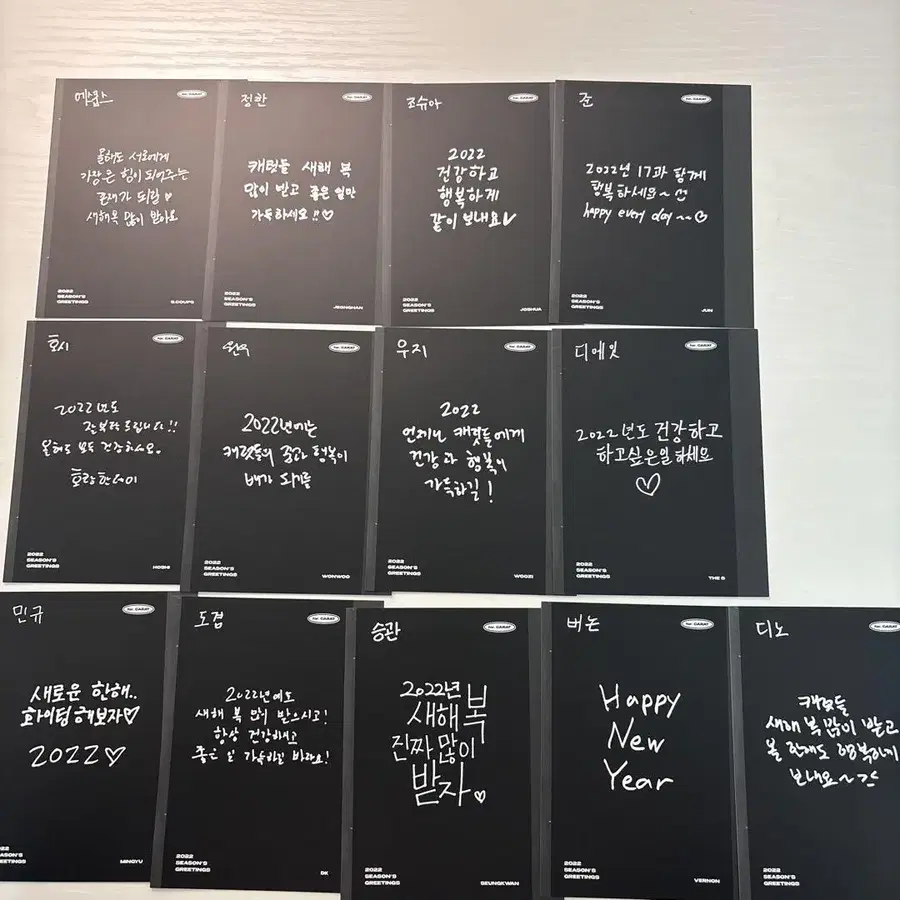 에스쿱스
for. CARAT
올해도 서로에게
가장 큰 힘이 되어주는
존재가 되길 ♡
새해복 많이 받아요
2022
SEASON'S
GREETINGS
S.COUPS
정한
for. CARAT
캐럿들 새해 복
많이 받고 좋은 일만
가득하세요!!♡
2022
SEASON'S
GREETINGS
JEONGHAN
조슈아
for. CARAT
2022
건강하고
행복하게
같이 보내요♡
2022
SEASON'S
GREETINGS
JOSHUA
준
for. CARAT
2022년 17과 함께
행복하세요~
happy every day ~~♡
2022
SEASON'S
GREETINGS
JUN
호시
for. CARAT
2022년도
잘 부탁드립니다!!
올해도 모두 건강하세요.
호랑한데이
2022
SEASON'S
GREETINGS
HOSHI
원우
for. CARAT
2022년에는
캐럿들의 운과 행복이
배가 되기를
2022
SEASON'S
GREETINGS
WONWOO
우지
for. CARAT
2022
언제나 캐럿들에게
건강과 행복이
가득하길!
2022
SEASON'S
GREETINGS
WOOZI
디에잇
for. CARAT
2022년도 건강하고
하고싶은일 하세요
♡
2022
SEASON'S
GREETINGS
THE 8
민규
for. CARAT
새로운 한해..
화이팅해보자♡
2022♡
2022
SEASON'S
GREETINGS
MINGYU
도겸
for. CARAT
2022년에도
새해 복 많이 받으시고!
항상 건강하시고
좋은 일 가득하길 바라요!
2022
SEASON'S
GREETINGS
DK
승관
for. CARAT
2022년
새해 복
진짜 많이
받자♡
2022
SEASON'S
GREETINGS
SEUNGKWAN
버논
for. CARAT
Happy
New
Year
2022
SEASON'S
GREETINGS
VERNON
디노
for. CARAT
캐럿들
새해 복 많이 받고
올 한해도 행복하게
보내요~
2022
SEASON'S
GREETINGS